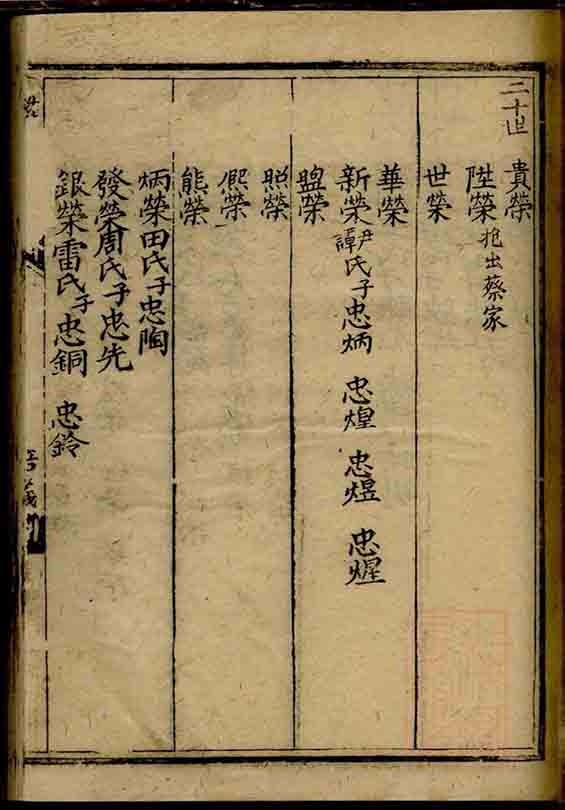 二十世
貴榮
陞榮抱出蔡家
世榮
華榮
新榮尹譚氏子忠炳 忠煌 忠煜 忠煋
盟榮
照榮
熈榮
熊榮
炳榮田氏子忠陶
發榮周氏子忠先
銀榮雷氏子忠銅 忠鈴